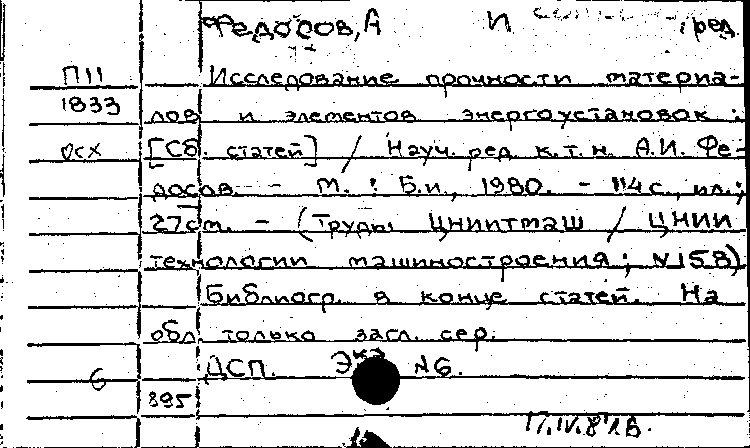 Федосов, А И ред.
П11 Исследование прочности материа-
1833 лов и элементов энергоустановок :
осх [Сб. статей] / Науч. ред к.т.н. А.И. Фе-
досов. - М. : Б.и., 1980. - 114 с., ил.;
27см. - (Труды ЦНИИТМАШ / ЦНИИ
технологии машиностроения; N158)
Библиогр. в конце статей. На
обл. только загл. сер.
6 ДСП. Экз N6.
895